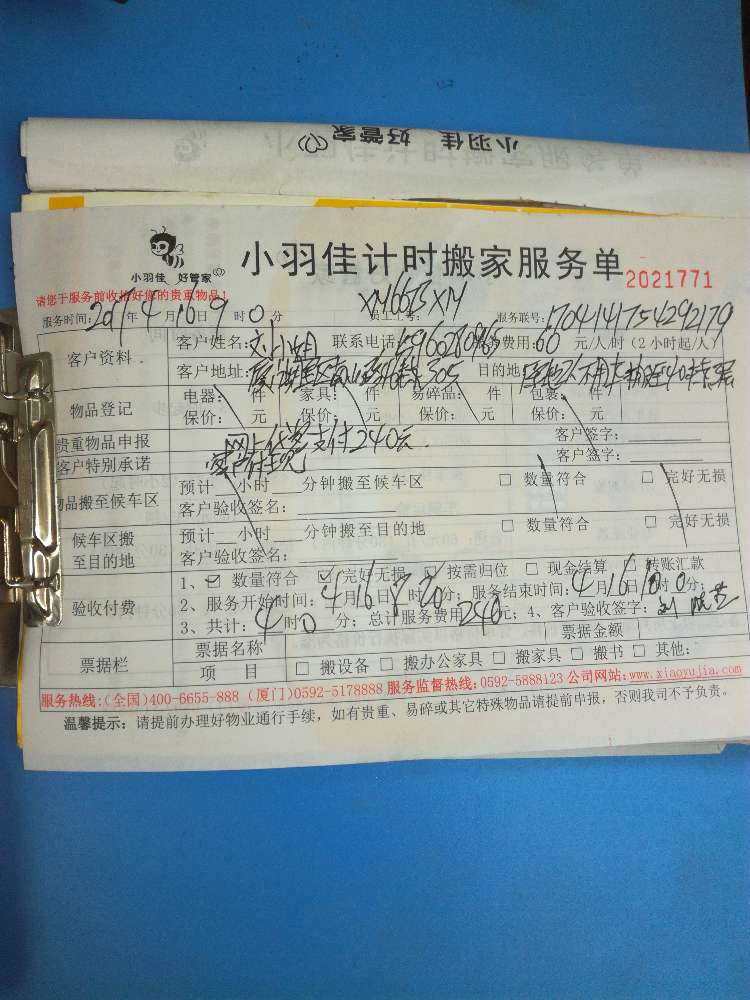 小羽佳 好管家
小羽佳 好管家
小羽佳计时搬家服务单 2021771
请您于服务前收拾好您的贵重物品!
XM6675XM
服务时间: 2017年4月16日9时0分 员工工号: 服务联号: 1704141754292179
客户资料 客户姓名: 联系电话: 15960280965 服务费用: 60元/人/时(2小时起/人)
客户地址: 305 目的地:
物品登记 电器: 件 家具: 件 易碎品: 件 包裹: 件
保价: 元 保价: 元 保价: 元 保价: 元
贵重物品申报 网上 支付240元. 客户签字:
客户特别承诺 客户签字:
物品搬至候车区 预计 小时 分钟搬至候车区 □ 数量符合 □ 完好无损
客户验收签名:
候车区搬至目的地 预计 小时 分钟搬至目的地 □ 数量符合 □ 完好无损
客户验收签名:
验收付费 1、☑ 数量符合 ☑ 完好无损 ☑ 按需归位 □ 现金结算 □ 转账汇款
2、服务开始时间: 4月16日8时20分; 服务结束时间: 4月16日 时0分;
3、共计: 4时0分; 总计服务费用240元; 4、客户验收签字:
票据栏 票据名称 票据金额
项 目 □ 搬设备 □ 搬办公家具 □ 搬家具 □ 搬书 □ 其他:
服务热线:(全国)400-6655-888 (厦门)0592-5178888 服务监督热线:0592-5888123 公司网站:www.xiaoyujia.com
温馨提示: 请提前办理好物业通行手续, 如有贵重、易碎或其它特殊物品请提前申报, 否则我司不予负责。